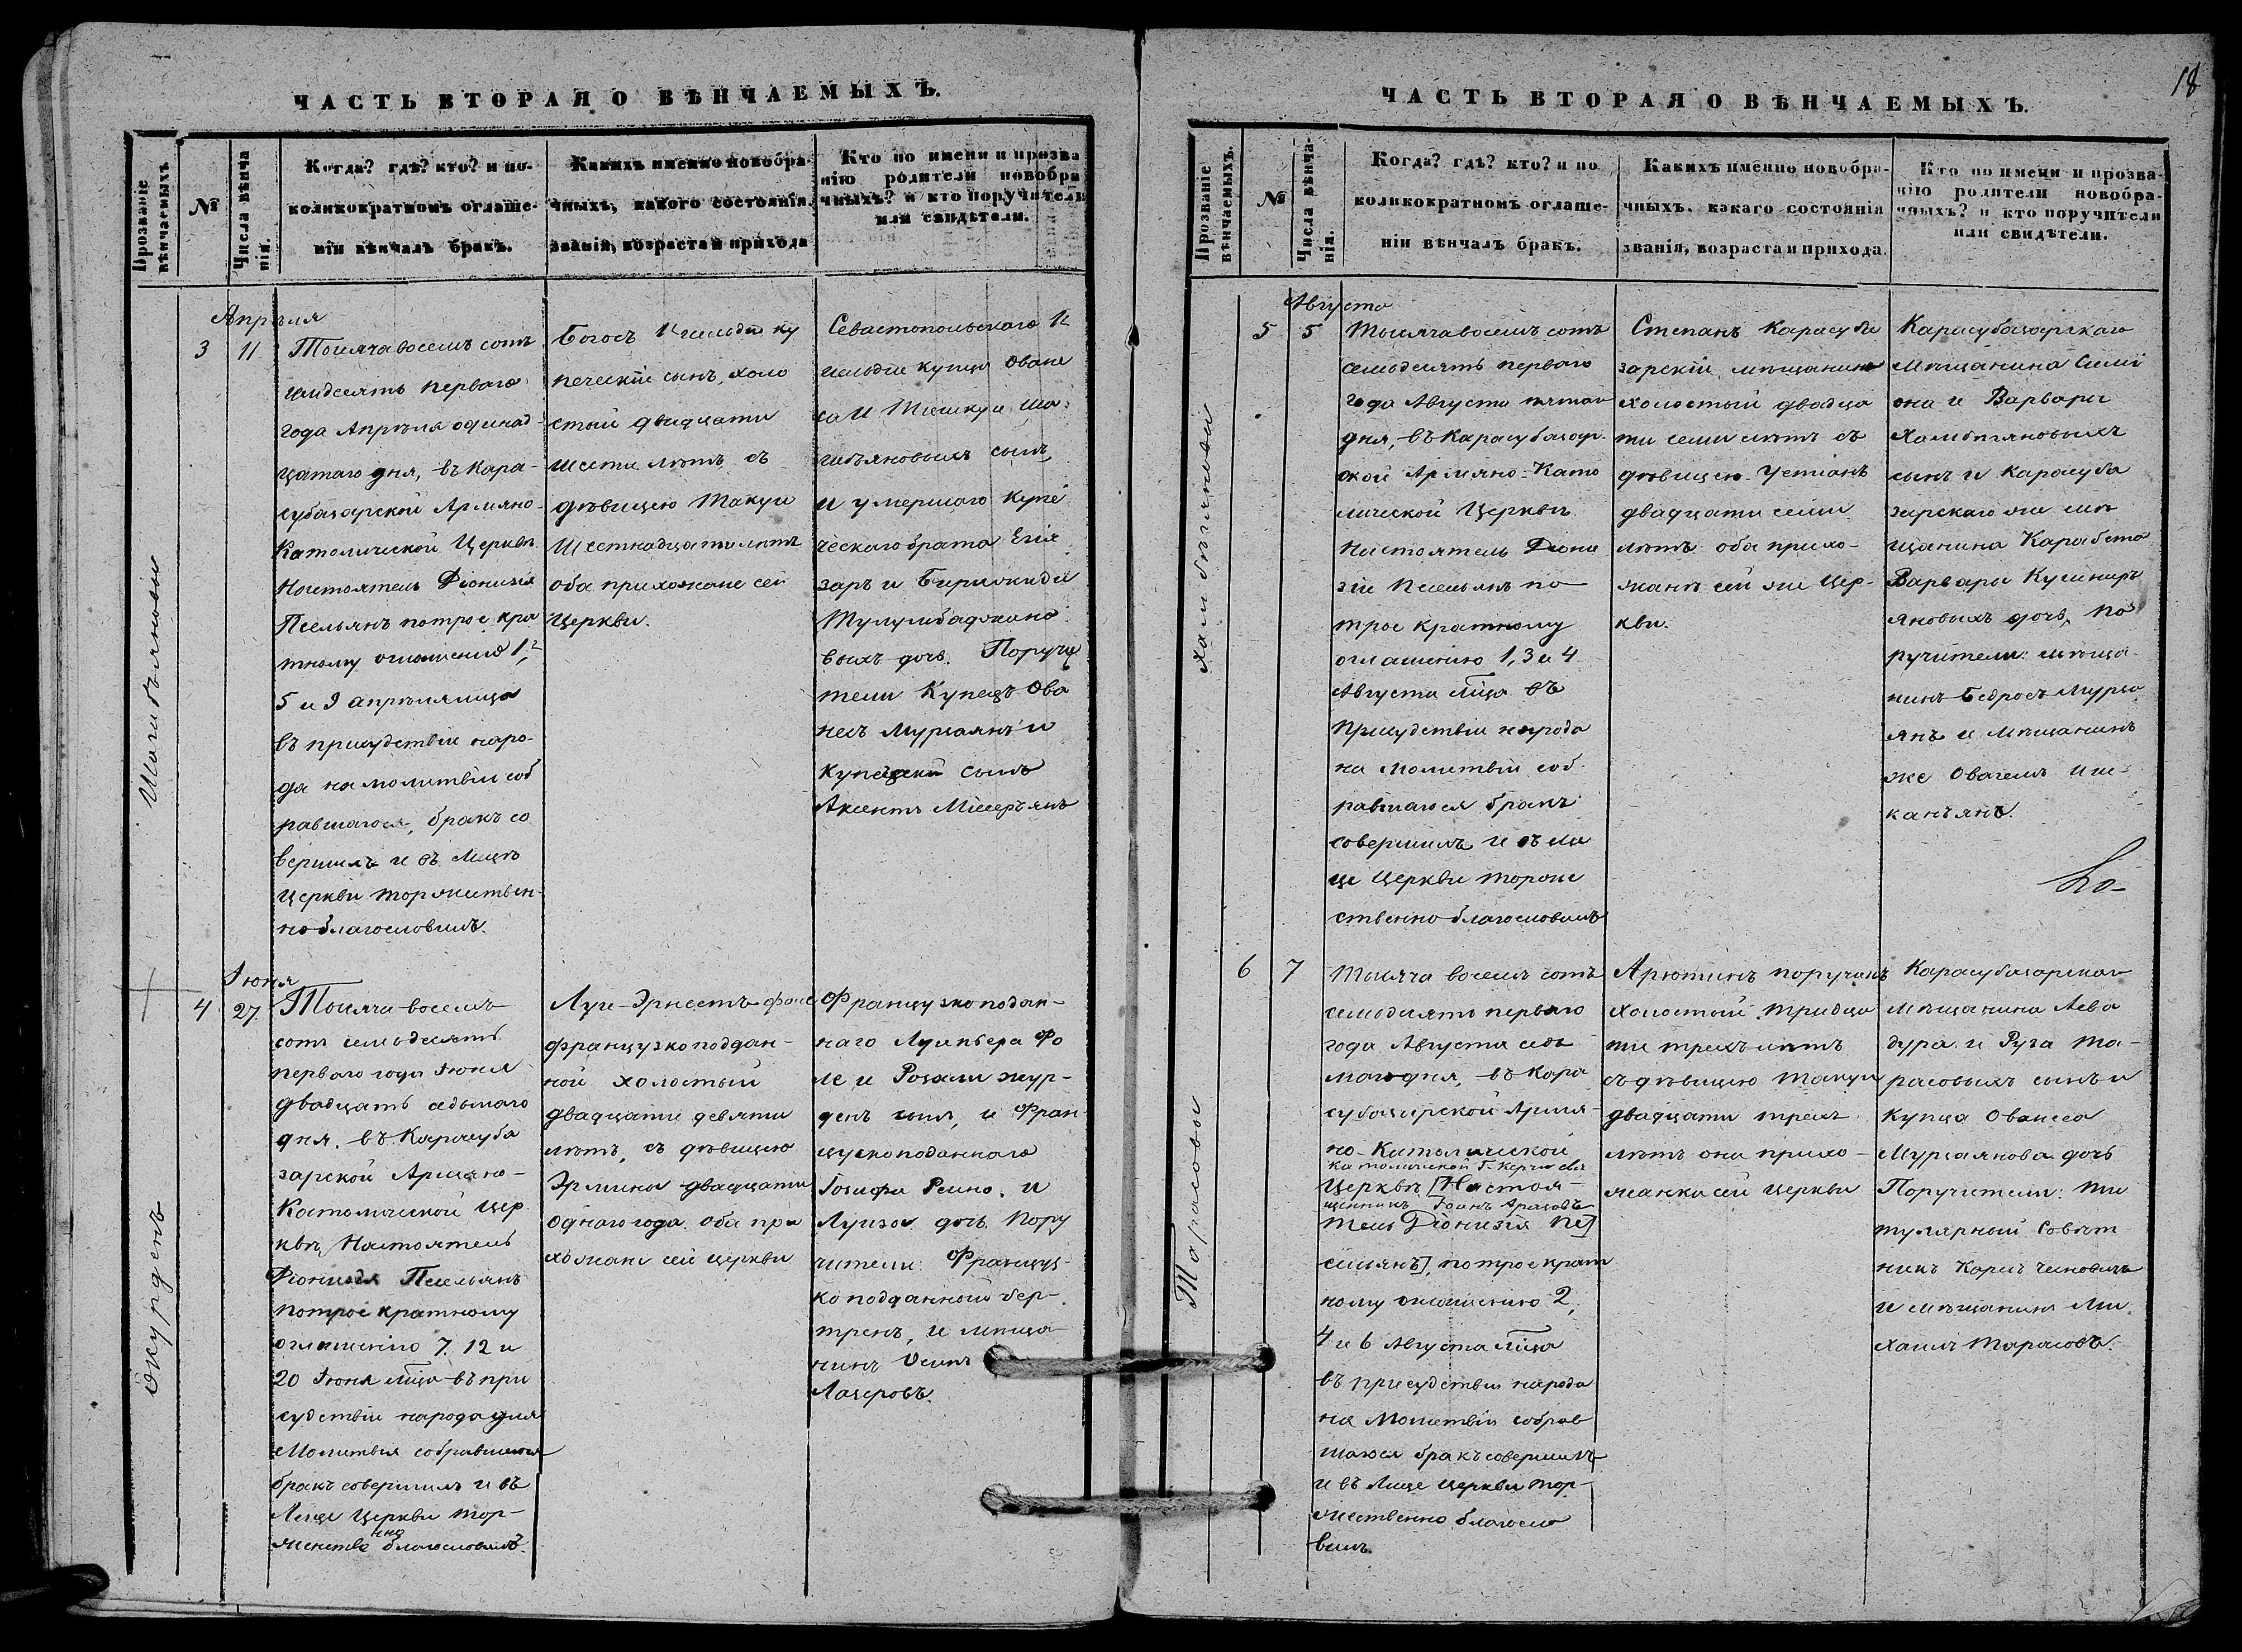 ЧАСТЬ ВТОРАЯ О ВѢНЧАЕМЫХЪ.
Прозваніе вѣнчаемыхъ
№
Числа вѣнчанія.
Когда? гдѣ? кто? и по-
коликократномъ оглаше-
ніи вѣнчалъ бракъ.
Какихъ именно новобра-
чныхъ, какого состоянія.
званія, возраста и прихода
Кто по имени и прозва
нію родители новобра
чныхъ? и кто поручители
или свидѣтели.
Шагибъяновы
Апрѣля
3
11
Тысяча восемь сотъ
года Апрѣля одинад-
цатаго дня, въ Кара-
субазарской Армяно-
Католической Церквѣ
Настоятель Діонизія
по трое кра
тному оглашенію 1,
5 и 9 апрѣля мца
въ присудствіи наро-
да на молитвіи соб
равшагося, бракъ со
вершилъ и въ Лицѣ
Церкви торжествен-
но благословилъ.
Богосъ 1 гильдіи ку
печескій сынъ, холо
стый двадцати
шести лѣтъ съ
дѣвицею Такуи
Шестнадцати лѣтъ
оба прихожане сей
Церкви.
Севастопольскаго 1
гильдіи купца Оване
са и
сынъ,
и умершаго купе
ческаго брата Егія
заръ и
выхъ дочь. Поручи
тели Купецъ Ова
несъ Мурзаянъ и
Купеческій Сынъ
Аксентъ Місеръянъ
Жкурденъ
Іюня
4
27.
Тысяча восемь
сотъ семьдесятъ
перваго года Іюня
двадцать седьмаго
дня, въ Карасуба
зарской Армяно-
Католической Цер
квѣ, Настоятель
Діонизія Псельянъ
по трое кратному
оглашенію 7. 12 и
20 Іюня мца въ при
судствіи народа для
Молитвія собравшагося
бракъ совершилъ и въ
Лице Церкви тор-
нно
жеств благословилъ.
Луи-Эрнестъ Фоле
французкоподдан-
ной холостый
двадцати девяти
лѣтъ, съ дѣвицею
Эрмина двадцати
одного года. оба при
хожане сей церкви
Французкоподан-
наго Луи пьера Фо
ле и Розали жур-
денъ сынъ, и Фран
цузкоподаннаго
Іозифа Реино. и
Луизы дочь. Пору
чители: Француз-
ко подданный бер-
тренъ, и мѣща-
нинъ Осипъ
Лазеровъ.
18
ЧАСТЬ ВТОРАЯ О ВѢНЧАЕМЫХЪ.
Прозваніе вѣнчаемыхъ.
№
Числа вѣнча-
нія.
Когда? гдѣ? кто? и по
коликократномъ оглаше-
ніи вѣнчалъ бракъ.
Какихъ именно новобра-
чныхъ. какаго состоянія
званія, возраста и прихода.
Кто по имени и прозва-
нію родители новобра-
чныхъ? и кто поручители
или свидѣтели.
Хамбѣяновы
Августа
5
5
Тысяча восемь сотъ
семьдесятъ перваго
года Августа пятаго
дня, въ Карасубазар-
ской Армяно-Като
лической Церквѣ
Настоятель Діони
зіи Псельянъ по
трое кратному
оглашенію 1, 3 и 4
Августа Мца въ
Присудствіи народа
на Молитвіи соб
равшагося бракъ
совершилъ и въ ли
це Церкви торже
ственно благословилъ
Степанъ Карасуба
зарскій мѣщанинъ
холостый двадца
ти семи лѣтъ съ
дѣвицею Устіанъ
двадцати семи
лѣтъ оба прихо-
жанѣ сей же Цер-
кви.
Карасубазарскаго
Мѣщанина Симі
она и Варвары
Хамбѣяновыхъ
сынъ и Карасуба
зарскаго же мѣ
щанина Карабета
Варвары Кушниръ
яновыхъ дочь, По
ручители: мѣща-
нинъ Бедросъ Мурза
янъ и мѣщанинъ
же Овагемъ Ши-
канъянъ.
Тарасовы
6
7
Тысяча восемь сотъ
семьдесятъ перваго
года Августа седь
маго дня, въ Кара
субазарской Армя-
но-Католической
католической Г. Керчи свя
Церквѣ [Настоя-
щенникъ Іоанъ Араловъ
тель Діонизія Пе]
сильянъ], по трое крат
ному оглашенію 2,
4 и 6 Августа Мца
въ присудствіи народа
на Молитвіи собрав
шагося бракъ совершилъ
и въ Лице церкви тор-
жественно благосло
вилъ.
Арютинъ поручикъ
холостый тридца
ти трехъ лѣтъ
съ дѣвицею Такуи
двадцати трехъ
лѣтъ они прихо-
жанки сей церкви
Карасубазарскаго
Мѣщанина Асва
дура и Руза Та-
расовыхъ сынъ и
Купца Ованеса
Мурзаянова дочь
Поручители: ти
тулярный Совѣт
никъ
и мѣщанинъ Ми
хаилъ Тарасовъ.